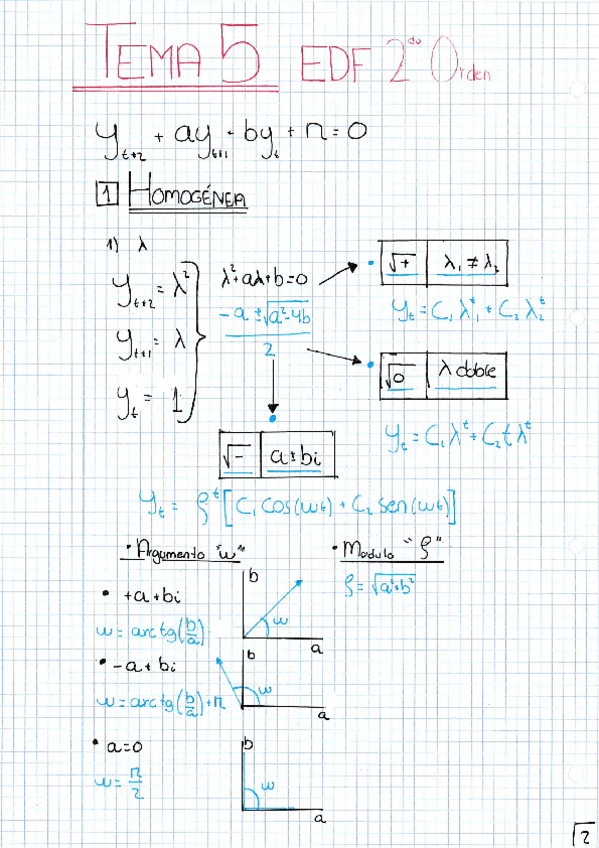 TEMA 5 EDF 2do Orden
y_{t+2} + ay_{t+1} + by_t + n = 0
1 HOMOGÉNEA
1) λ
y_{t+2} = λ²
y_{t+1} = λ
y_t = 1
λ² + aλ + b = 0
(-a ± √(a²-4b)) / 2
√+ | λ₁ ≠ λ₂
y_t = C₁ λ₁^t + C₂ λ₂^t
√0 | λ doble
y_t = C₁ λ^t + C₂ t λ^t
√- | a ± bi
y_t = ρ^t [C₁ cos(wt) + C₂ sen(wt)]
· Argumento "w"
· +a + bi
w = arc tg(b/a)
b
w
a
· -a + bi
w = arc tg(b/a) + π
b
w
a
· a = 0
w = π/2
b
w
a
· Modulo "ρ"
ρ = √(a²+b²)
2